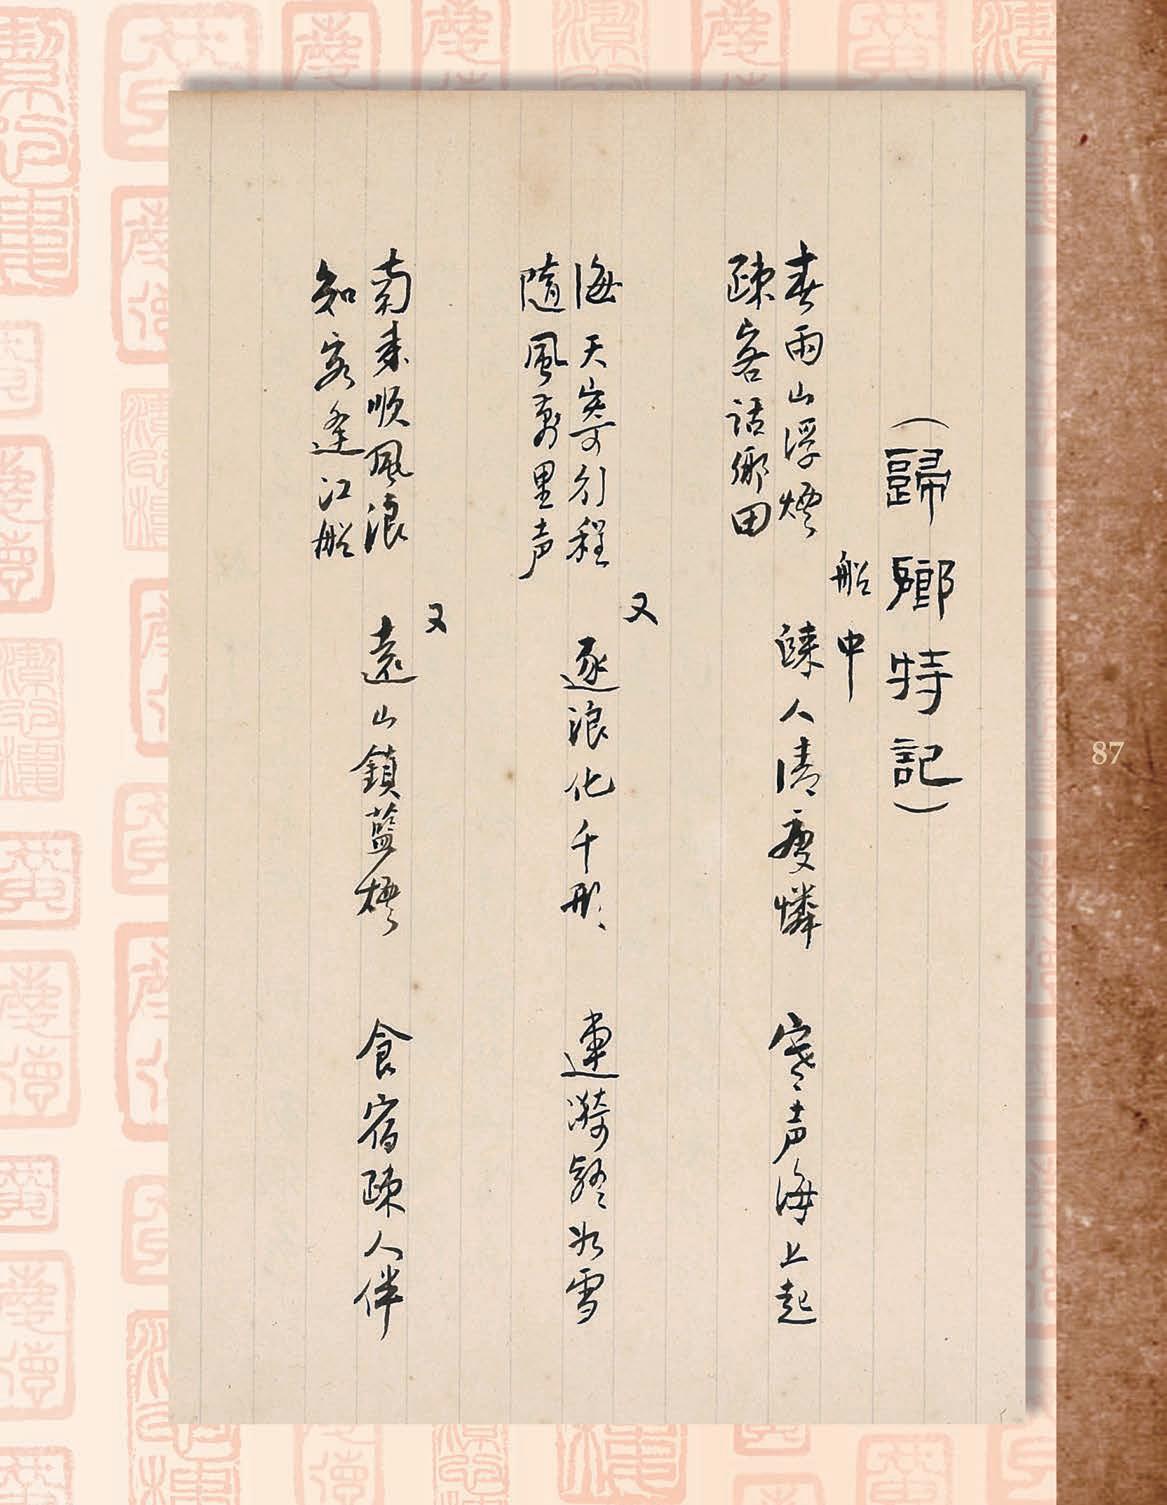 （歸鄉特記）
船中
春雨山浮煙 疎人清瘦憐 寒声海上起
疎客話鄉田
又
海天寄行程 逐浪化千形 連漪餘似雪
隨風万里声
又
南来順風浪 遠山鎖藍 食宿疎人伴
知客逢江船
87